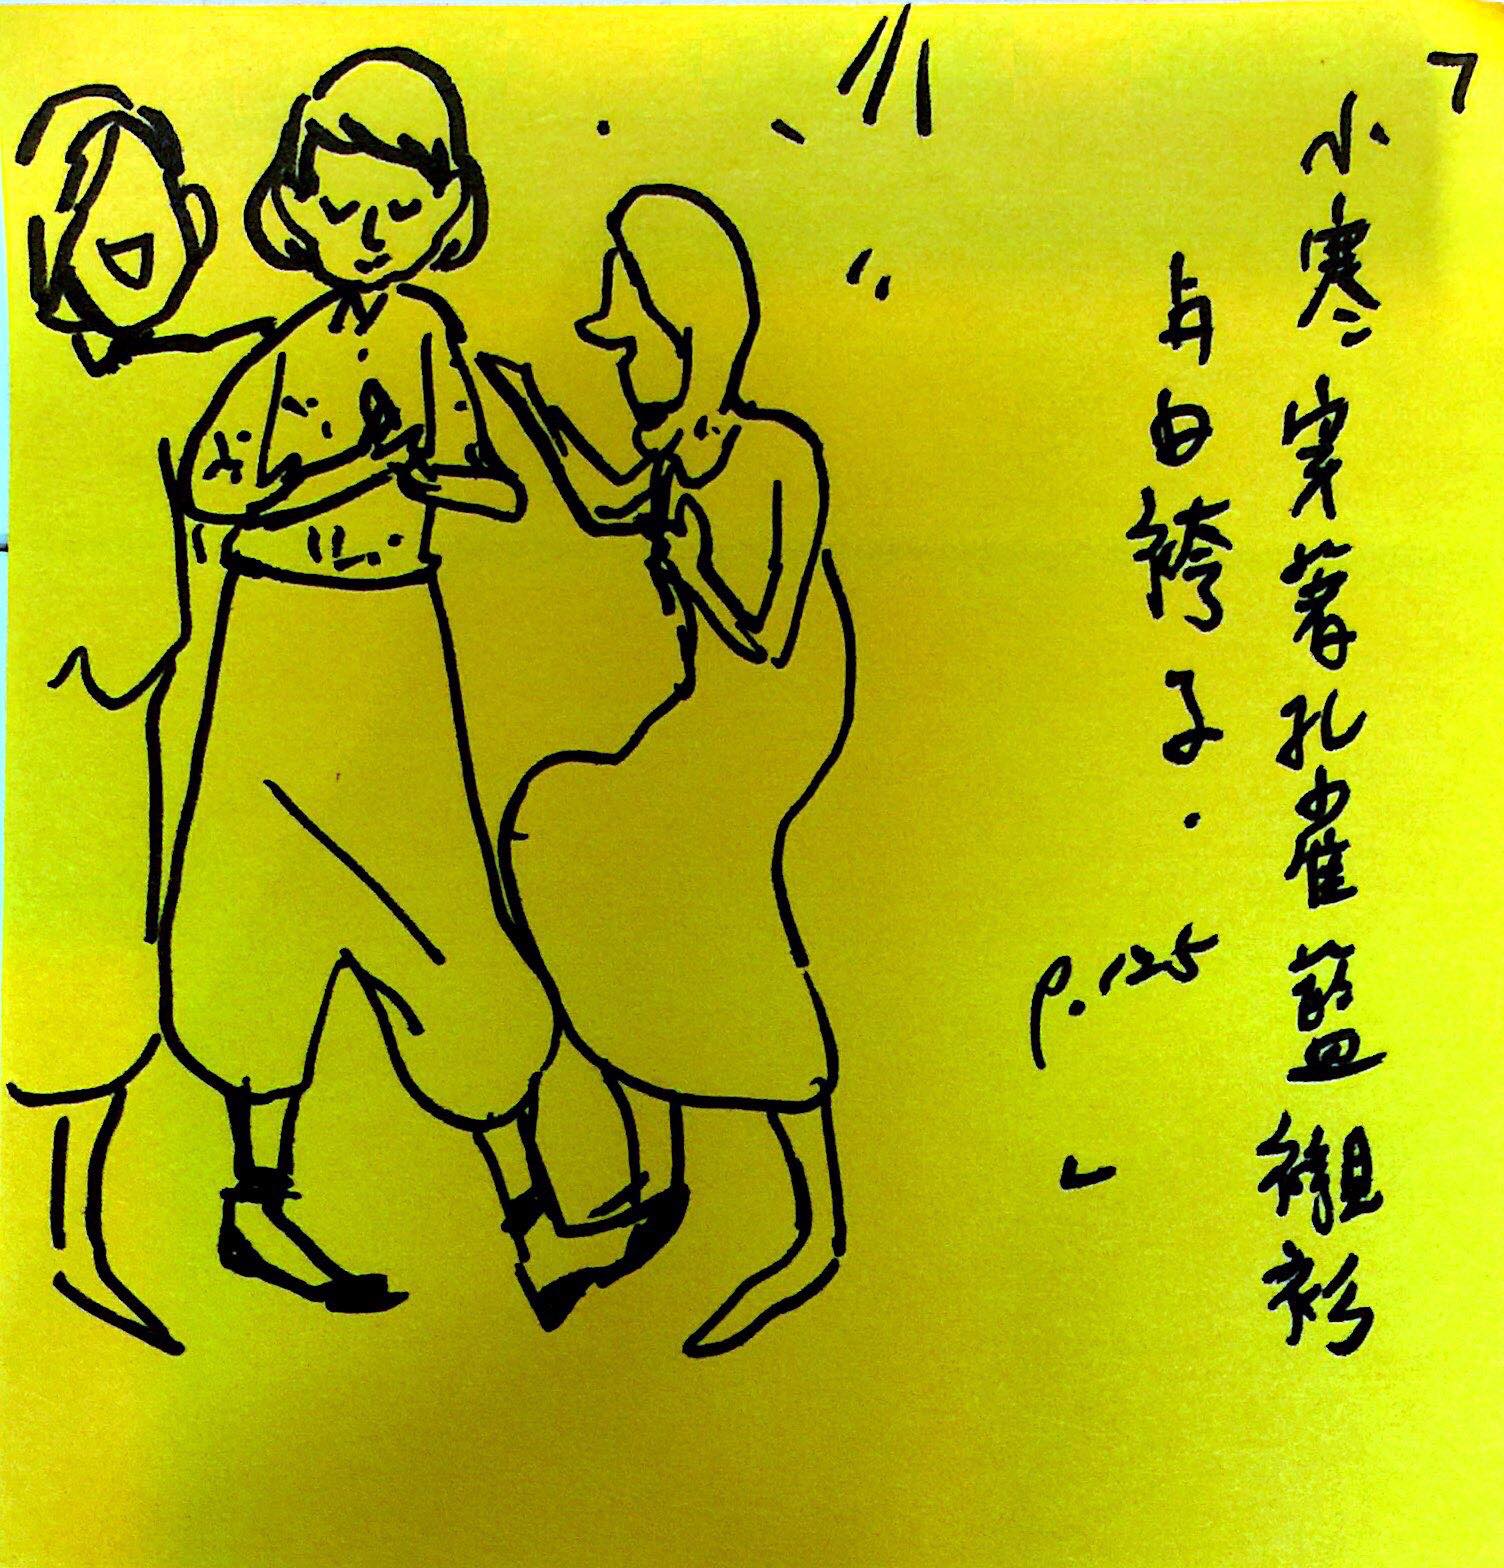 「小寒穿著孔雀藍襯衫
与白袴子.
P.125」